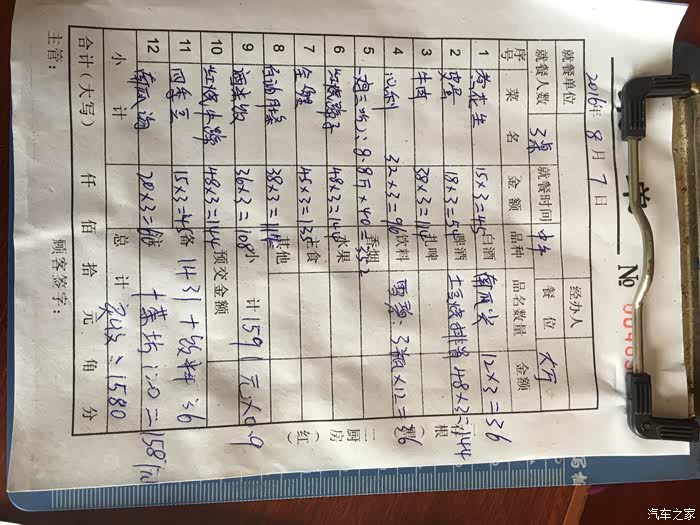 单
№
2016年 8月 7日
就餐单位
经办人
就餐人数 3桌 就餐时间 中午 餐位 大厅
序号 菜名 金额 品种 品名数量 金额
1 煮花生 15×3=45 白酒 南瓜尖 12×3=36
2 皮蛋 18×3=54 啤酒 土豆烧排骨 48×3=144
3 牛肉 38×3=114 扎啤
4 心利 32×3=96 饮料 雪碧 3瓶×12=36
5 9.8斤×40=392 香烟
6 红烧 48×3=144 水果
7 45×3=135 主食
8 白油肝 38×3=114 其他
9 酒米饭 36×3=108 小计 1591元×0.9
10 红烧 48×3=144 预交金额
11 四季豆 15×3=45 备 1431+饮料36
12 南瓜汤 20×3=60 注 +菜120=1587元
小计 总计 实收:1580
合计(大写) 仟 佰 拾 元 角 分
主管: 顾客签字:
存根
二厨房(红)
汽车之家